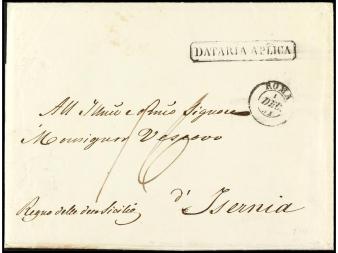 DATARIA APLICA
ROMA
1
DEC.
All' Illmo e Rmo Signore
Monsignor Vescovo
d' Isernia
Regno delle due Sicilie